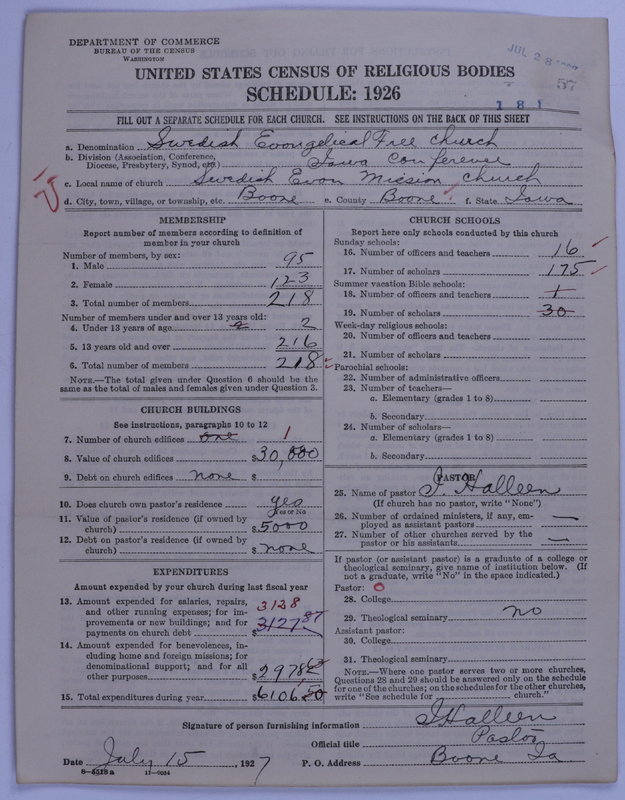 DEPARTMENT OF COMMERCE
BUREAU OF THE CENSUS
WASHINGTON
JUL 28
57
UNITED STATES CENSUS OF RELIGIOUS BODIES
SCHEDULE: 1926
181
FILL OUT A SEPARATE SCHEDULE FOR EACH CHURCH. SEE INSTRUCTIONS ON THE BACK OF THIS SHEET
a. Denomination Swedish Evangelical Free Church
b. Division (Association, Conference, Diocese, Presbytery, Synod, etc.) Iowa Conference
c. Local name of church Swedish Evan Mission Church
d. City, town, village, or township, etc. Boone e. County Boone f. State Iowa
MEMBERSHIP
Report number of members according to definition of
member in your church
Number of members, by sex:
1. Male 95
2. Female 123
3. Total number of members 218
Number of members under and over 13 years old:
4. Under 13 years of age 2 2
5. 13 years old and over 216
6. Total number of members 218
NOTE.—The total given under Question 6 should be
same as the total of males and females given under Question 3.
CHURCH BUILDINGS
See instructions, paragraphs 10 to 12
7. Number of church edifices one 1
8. Value of church edifices $30,000
9. Debt on church edifices none $
10. Does church own pastor's residence yes
Yes or No
11. Value of pastor's residence (if owned by
church) $5000
12. Debt on pastor's residence (if owned by
church) $none
EXPENDITURES
Amount expended by your church during last fiscal year
13. Amount expended for salaries, repairs, 3128
and other running expenses; for im-
provements or new buildings; and for
payments on church debt $3127 87
14. Amount expended for benevolences, in-
cluding home and foreign missions; for
denominational support; and for all
other purposes $2978 63
15. Total expenditures during year $6106,50
CHURCH SCHOOLS
Report here only schools conducted by this church
Sunday schools:
16. Number of officers and teachers 16
17. Number of scholars 175
Summer vacation Bible schools:
18. Number of officers and teachers 1
19. Number of scholars 30
Week-day religious schools:
20. Number of officers and teachers
21. Number of scholars
Parochial schools:
22. Number of administrative officers
23. Number of teachers—
a. Elementary (grades 1 to 8)
b. Secondary
24. Number of scholars—
a. Elementary (grades 1 to 8)
b. Secondary
PASTOR
25. Name of pastor J. Halleen
(If church has no pastor, write "None")
26. Number of ordained ministers, if any, em-
ployed as assistant pastors —
27. Number of other churches served by the
pastor or his assistants —
If pastor (or assistant pastor) is a graduate of a college or
theological seminary, give name of institution below. (If
not a graduate, write "No" in the space indicated.)
Pastor: 0
28. College
29. Theological seminary no
Assistant pastor:
30. College
31. Theological seminary
NOTE.—Where one pastor serves two or more churches,
Questions 28 and 29 should be answered only on the schedule
for one of the churches; on the schedules for the other churches,
write "See schedule for church."
Signature of person furnishing information J Halleen
Official title Pastor
Date July 15, 1927 P. O. Address Boone Ia
8-5518a 11-9624